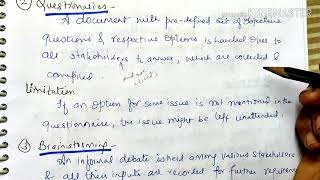 ② Questionaries →
Made with KINEMASTER
A document with pre-defined set of objective
questions & respective options is handed over to
all stakeholders to answer, which are collected &
compiled.
Limitation
If an option for some issue is not mentioned in the
questionnaire, the issue might be left unattended.
③ Brainstorming →
An informal debate is held among various stakeholders
& all their inputs are recorded for further requirem